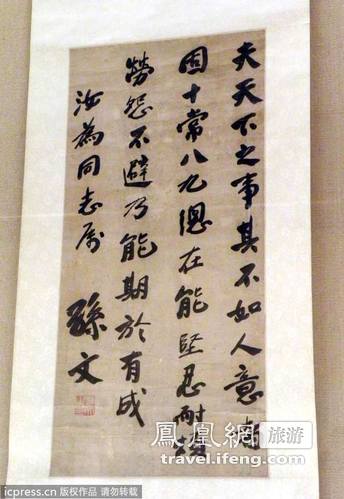 夫天下之事其不如人意者
固十常八九總在能堅忍耐煩
勞怨不避乃能期於有成
汝為同志属
孫文
鳳凰網 旅游
travel.ifeng.com
icpress.cn 版权作品 请勿转载